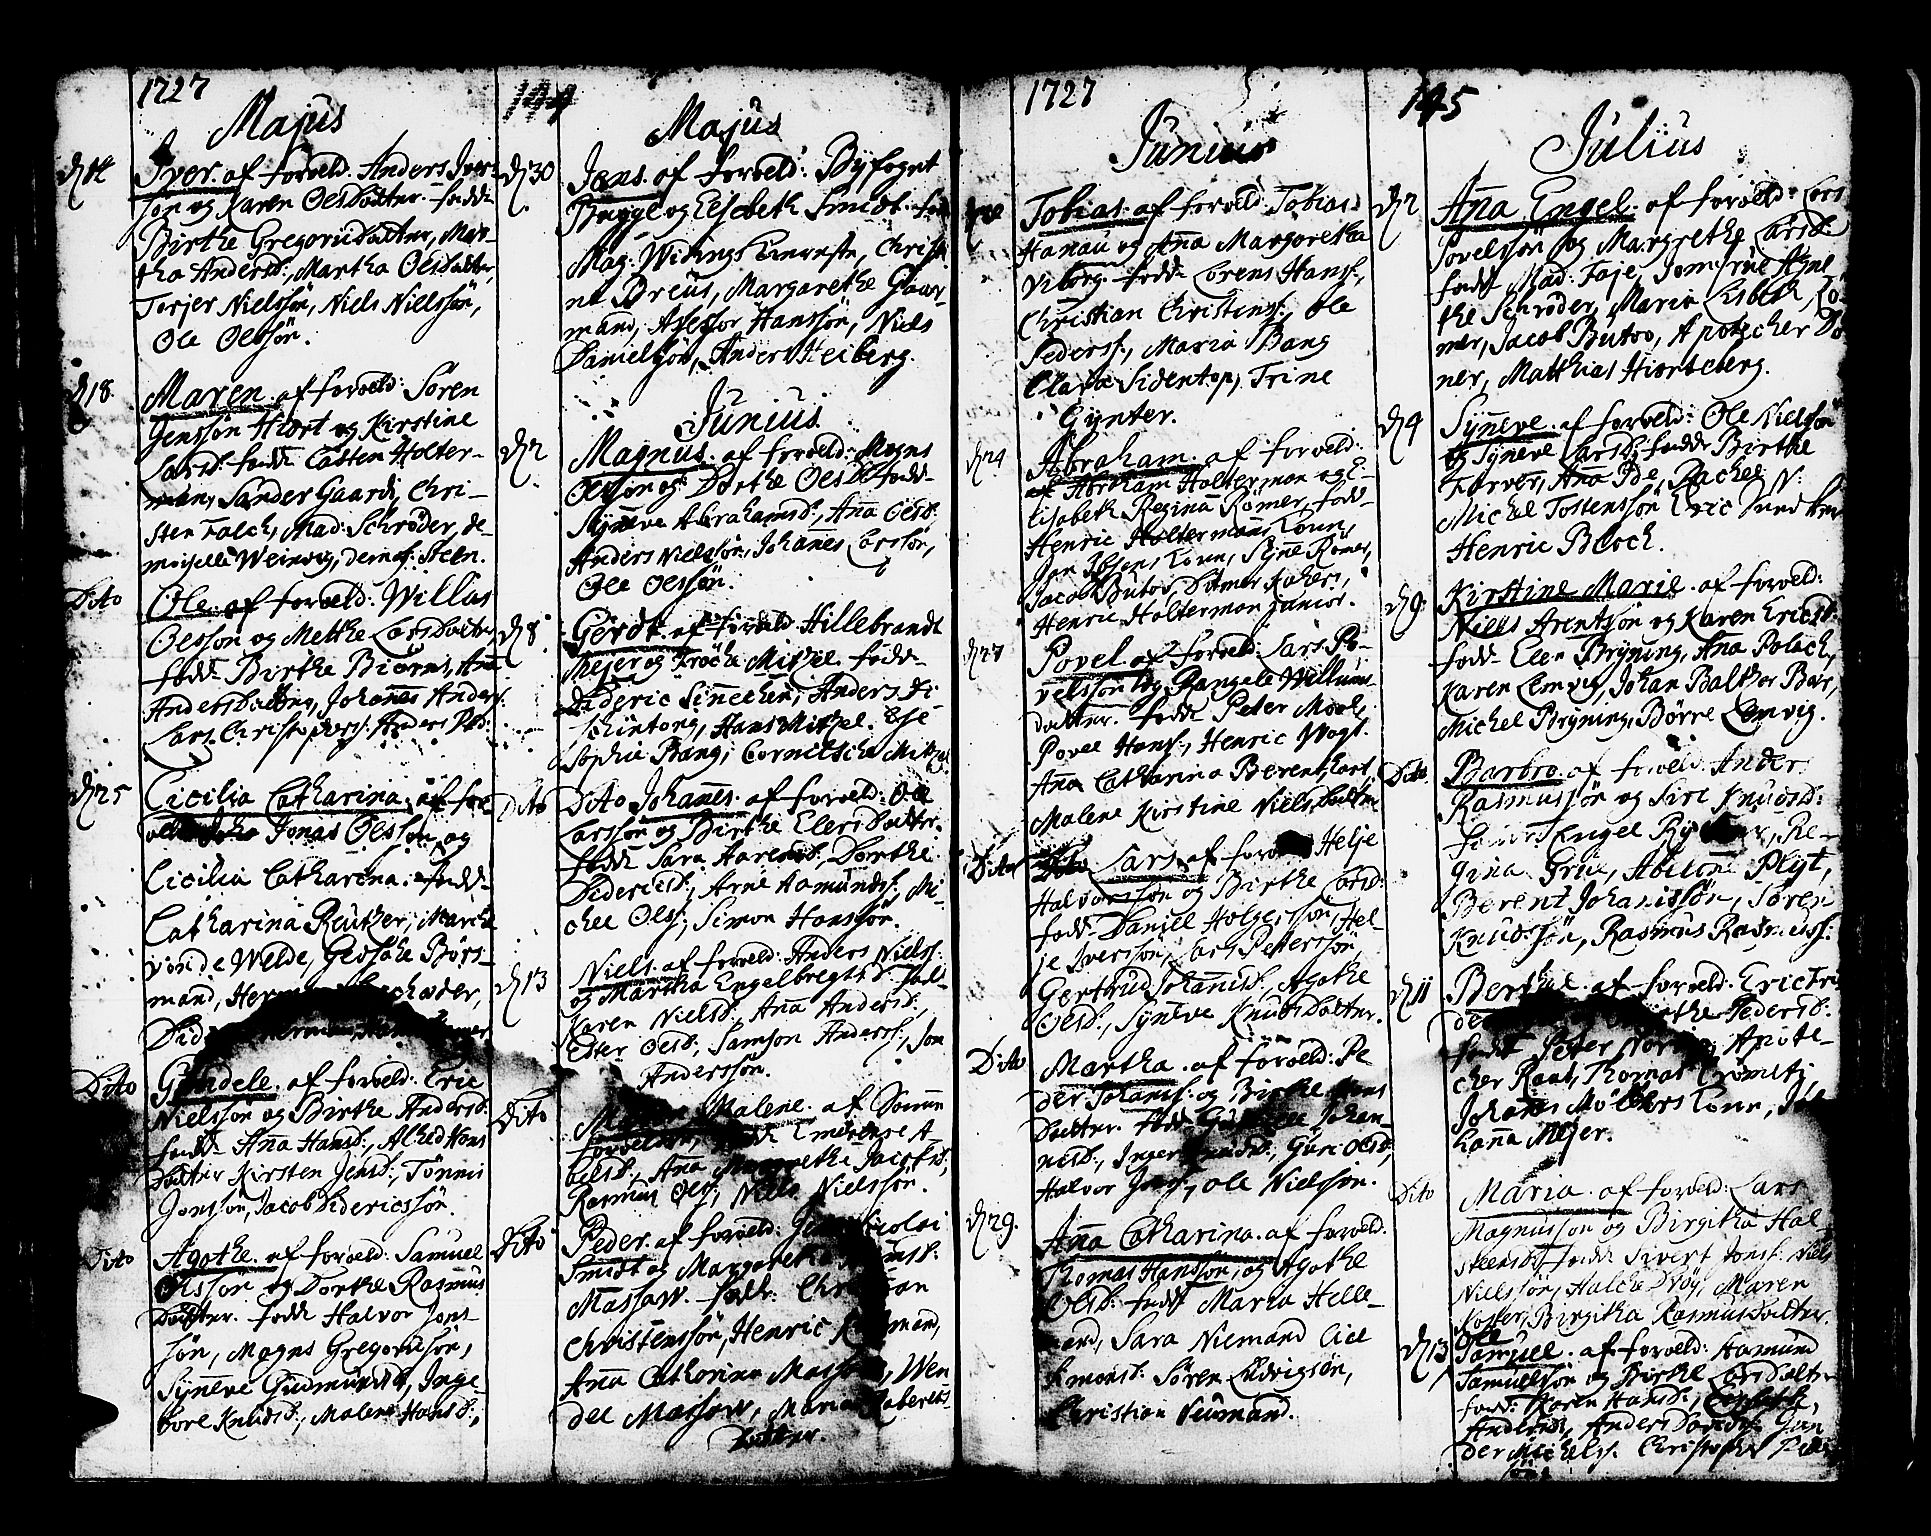 1727
Majus
d 14
Iver. af foræld. Anders Iver-
søn og Karen Olsdatter. fadd:
Birthe Gregoriidatter, Mar-
tha Andersd:, Martha Olsdatter,
Torjer Nielssøn, Niels Nielssøn,
Ole Olssøn.
d 18.
Maren. af foræld: Søren
Jenssøn Hiort og Kirstine
Larsd: fadd: Casten Holter-
man, Sander Gaard, Chri-
sten Falch, Mad: Schrøder, de-
moiselle Weinwig, dem: Steen.
Dito
Ole. af foræld: Willas
Olssøn og Metthe Larsdatter,
fadd: Birthe Biørns, Ana
Andersdatter, Johanes Anders:
Lars Christophers: Anders Ped:
d 25
Cicilia Catharina. af for
Jonas Olssøn og
Cicilia Catharina. fadd:
Catharina Reutker, Marth
von de Welde, Geska Børs-
mand,
Did
Dito
Gundele. af foræld: Eric
Nielssøn og Birthe Andersd:
fadd: Ana Hansd:, Alhed Hans
datter, Kirsten Jensd:, Tønnis
Jonssøn, Jacob Didericssøn.
Dito
Agathe. af foræld: Samuel
Olssøn og Dorthe Rasmus
datter. fadd Halvor Jons-
søn, Magns Gregoriisøn,
Syneve Gudmunds, Inge-
borl Knudsd:, Malene Hansd:,
144
Majus
d 30
Jens. af foræld: Byfoget
Brygge og Elsebeth Smidt. fad
Mag: Widings Kiæreste, Christi
ne Dreus, Margarethe Gaar-
mand, Assessor Hanssøn, Niels
Danielssøn, Anders Heiberg.
Junius
d 2
Magnus. af foræld: Magns
Olssøn og Dorthe Olsd: fadd:
Syneve Abrahamsd:, Ana Olsd:
Anders Nielssøn, Johanes Larssøn,
Ole Olssøn.
d 8.
Gerdt. af foræld: Hillebrandt
Mejer og Trøche Mitzel. fadd:
Dideric Sinechen, Anders Di-
Hans Mitzel. Else
Sophie Bang, Cornelscha Mitzel
Dito
Dito Johanes. af foræld: Ole
Larssøn og Birthe Elersdatter.
fadd: Sara Harensd:, Dorthe
Didericsd:, Arne Aamundss:, Mi-
chel Olss:, Simon Hanssøn.
d 13
Niels. af foræld: Anders Niels:
og Martha Engelbregtsd. fad:
Karen Nielsd:, Ana Andersd:,
Ester Olsd:, Samson Anderss:, Jon
Anderssøn.
Dito
Malene. af
forældre, fadd: Emerense A-
belsd:, Ana Margrethe Jacobsd:,
Rasmus Olss:, Niels Nielssøn.
Dito
Peder. af foræld: Nicolai
Smidt og Margareta
Massaw. fadd: Christian
Christenssøn, Henric mand,
Ana Catharina Massow, Wen
del Massow, Maria Roberts
datter.
1727
Junius
Tobias. af foræld: Tobias
Hanau og Ana Margaretha
Viborg. fadd: Lorens Hans:,
Christian Christens:, Ole
Pederss:, Maria Bang
Clara Sidentop, Trine
Gynter.
d 24
Abraham. af foræld:
af Abraham Holterman og E-
lisabeth Regina Rømer. fadd:
Henric Holtermans Konn,
Jan Ibsens Konn, Syne Rømer,
Jacob Butov, Ditmer Kahrs,
Henric Holterman Junior.
d 27
Povel. af foræld: Lars Po-
velssøn og Rangele Willums
datter. fadd: Peter Mool,
Povel Hans:, Henric Vogt.
Ana Catharina Berenthart
Malene Kirstine Nielsdatter
Dito
Lars. af foræld Helje
Halvorssøn og Birthe Larsd:
fadd: Daniel Holgerssøn, Hel-
je Iverssøn, Lars Peterssøn,
Gertrud Johanisd:, Agathe
Olsd:, Syneve Knudsdatter.
Dito
Martha. af foræld: Pe
der Johans: og Birthe Jens
datter. fadd: Johan-
nesd:, Inger Knudsd:, Guri Olsd:,
Halvor Jons:, Ole Nielssøn.
d 29.
Ana Catharina. af foræld:
Thomas Hanssøn, og Agathe
Olsd: fadd: Maria Helle-
mand, Sara Niemand, Cicil
Simonsd: Søren Ludvigsøn,
Christian Neumand.
145
Julius
d 2
Ana Engel. af foræld: Lars
Povelssøn og Margrethe Larsd:
fadd: Mad: Faje, Jomfrue Agne-
the Schrøder, Maria Lisbeth Rø-
mer, Jacob Butov, Apothecher Dø
ner, Matthias Hiorteberg.
d 4
Syneve. af foræld: Ole Nielssøn
og Syneve Larsd: fadd: Birthe
Farver, Ana Ibe, Rachel N:
Michel Tostenssøn, Eric
Henric Bloch.
d 9.
Kirstine Marie. af foræld:
Niels Arentsøn og Karen Ericsd:
fadd: Elen Bryning, Ana Polach,
Karen Lemvig, Johan Balther Bær,
Michel Bryning, Børre Lemvig.
Dito
Barbro. af foræld: Anders
Rasmussøn og Siri Knudsd:
Engel Re-
gina Grue, Abilone Plyt,
Berent Johanissøn, Søren
Knudssøn, Rasmus Rasmuss:
d 11
Berthel. af foræld: Eric Tri
de Birthe Pedersd:
fadd: Peter Apote-
cher Raat, Thomas Cromeli,
Johans Møllers Konn, Jo-
hanna Mejer.
Dito
Maria. af foræld: Lars
Magnussøn og Birgitha Hal-
steensd: fadd: Sivert Jonss: Niels
Nielssøn, Halche Drøy, Maren
Koster, Birgitha Rasmusdatter.
d 13
Samuel. af foræld: Aamund
Samuelssøn og Birthe Larsdatter
fadd: Karen Hansd:,
Andersd:, Anders Gun
der Michelss: Christopher Peder